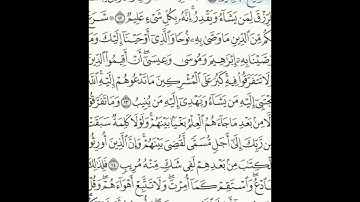 لرِّزْقَ لِمَن يَشَآءُ وَيَقْدِرُ ۚ إِنَّهُۥ بِكُلِّ شَىْءٍ عَلِيمٌ ١٢ ۞ شَرَعَ
كُم مِّنَ ٱلدِّينِ مَا وَصَّىٰ بِهِۦ نُوحًا وَٱلَّذِىٓ أَوْحَيْنَآ إِلَيْكَ وَمَا
صَّيْنَا بِهِۦٓ إِبْرَٰهِيمَ وَمُوسَىٰ وَعِيسَىٰٓ ۖ أَنْ أَقِيمُوا۟ ٱلدِّينَ
لَا تَتَفَرَّقُوا۟ فِيهِ ۚ كَبُرَ عَلَى ٱلْمُشْرِكِينَ مَا تَدْعُوهُمْ إِلَيْهِ ۚ ٱللَّهُ
جْتَبِىٓ إِلَيْهِ مَن يَشَآءُ وَيَهْدِىٓ إِلَيْهِ مَن يُنِيبُ ١٣ وَمَا تَفَرَّقُوٓا۟
لَّا مِنۢ بَعْدِ مَا جَآءَهُمُ ٱلْعِلْمُ بَغْيًۢا بَيْنَهُمْ ۚ وَلَوْلَا كَلِمَةٌ سَبَقَتْ
مِن رَّبِّكَ إِلَىٰٓ أَجَلٍ مُّسَمًّى لَّقُضِىَ بَيْنَهُمْ ۚ وَإِنَّ ٱلَّذِينَ أُورِثُوا۟
ٱلْكِتَٰبَ مِنۢ بَعْدِهِمْ لَفِى شَكٍّ مِّنْهُ مُرِيبٍ ١٤ فَلِذَٰلِكَ
فَٱدْعُ ۖ وَٱسْتَقِمْ كَمَآ أُمِرْتَ ۖ وَلَا تَتَّبِعْ أَهْوَآءَهُمْ ۖ وَقُلْ